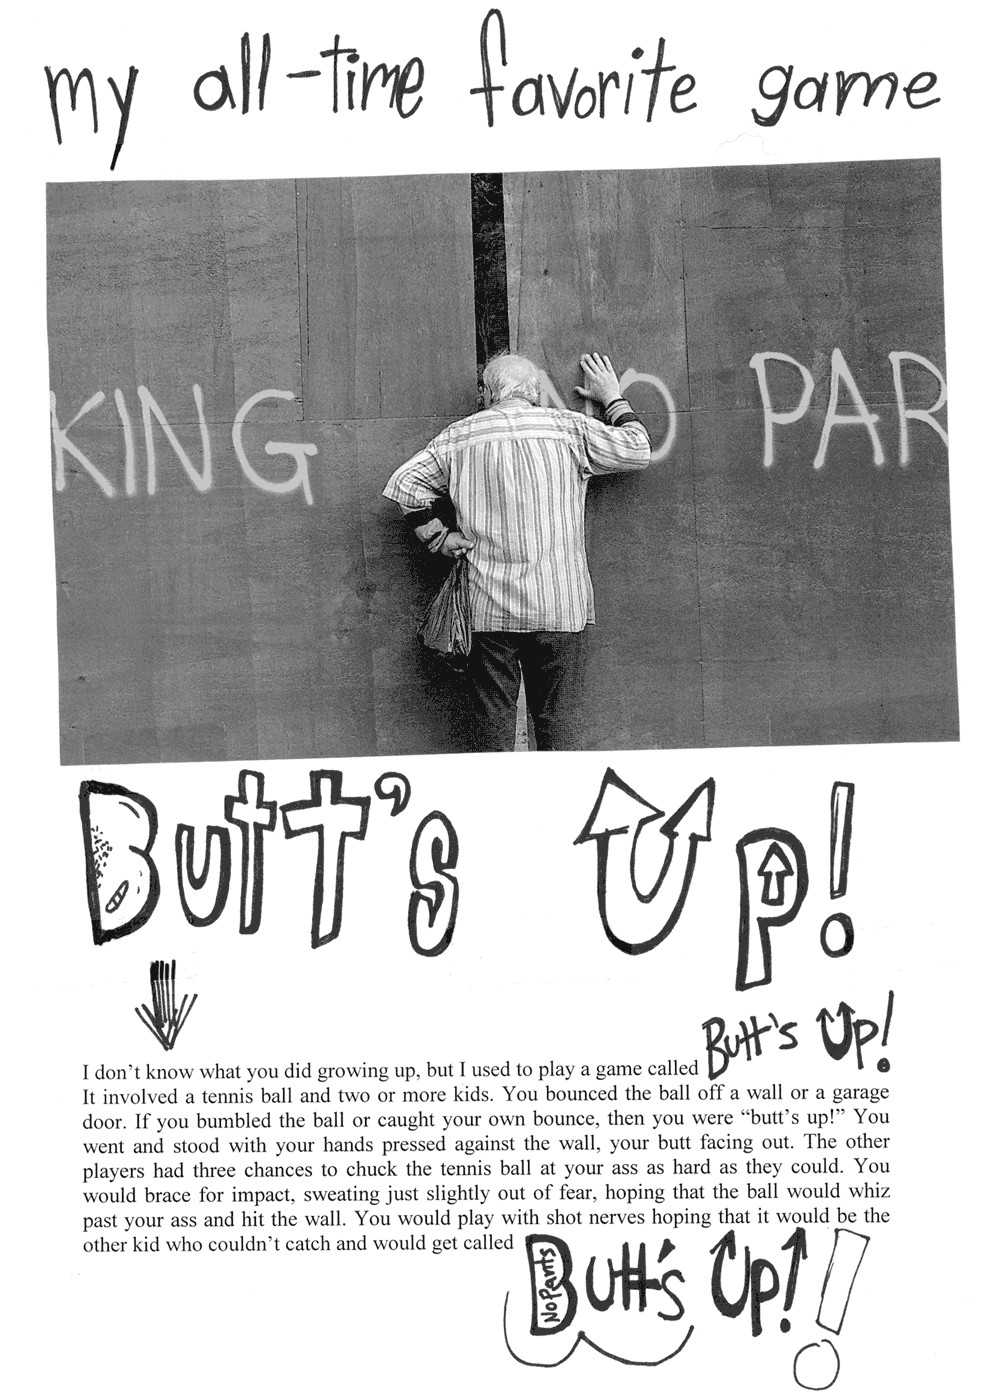 my all-time favorite game
KING NO PAR
Butt's Up!
I don't know what you did growing up, but I used to play a game called Butt's Up!
It involved a tennis ball and two or more kids. You bounced the ball off a wall or a garage
door. If you bumbled the ball or caught your own bounce, then you were “butt's up!” You
went and stood with your hands pressed against the wall, your butt facing out. The other
players had three chances to chuck the tennis ball at your ass as hard as they could. You
would brace for impact, sweating just slightly out of fear, hoping that the ball would whiz
past your ass and hit the wall. You would play with shot nerves hoping that it would be the
other kid who couldn't catch and would get called Butt's Up!!
No Pants